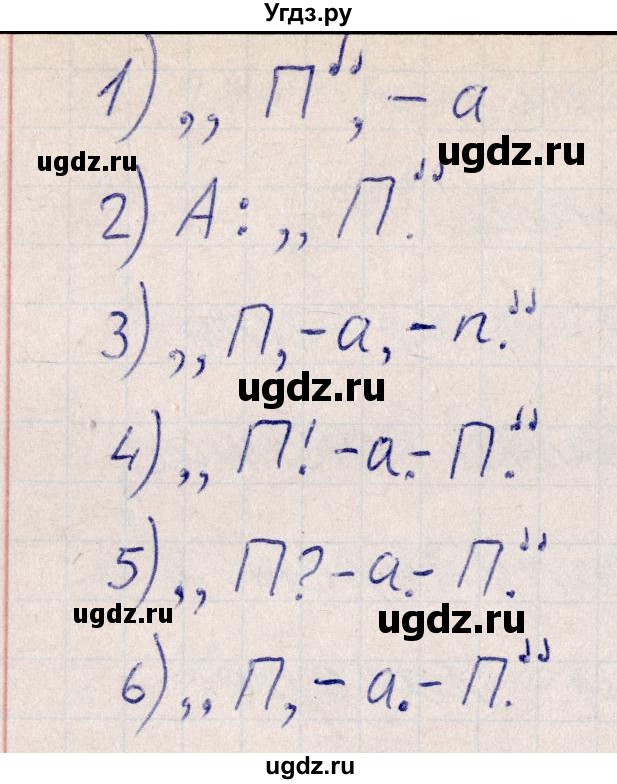 Угдз.ру
1) ,, П“, – а
ugdz.ru
ugdz.ru
2) А: ,, П.“
3) ,, П, – а, – п.“
ugdz.ru
4) ,, П! – а. – П.“
5) ,, П? – а. – П.“
ugdz.ru
ugdz.ru
6) ,, П, – а. – П.“
ugdz.ru